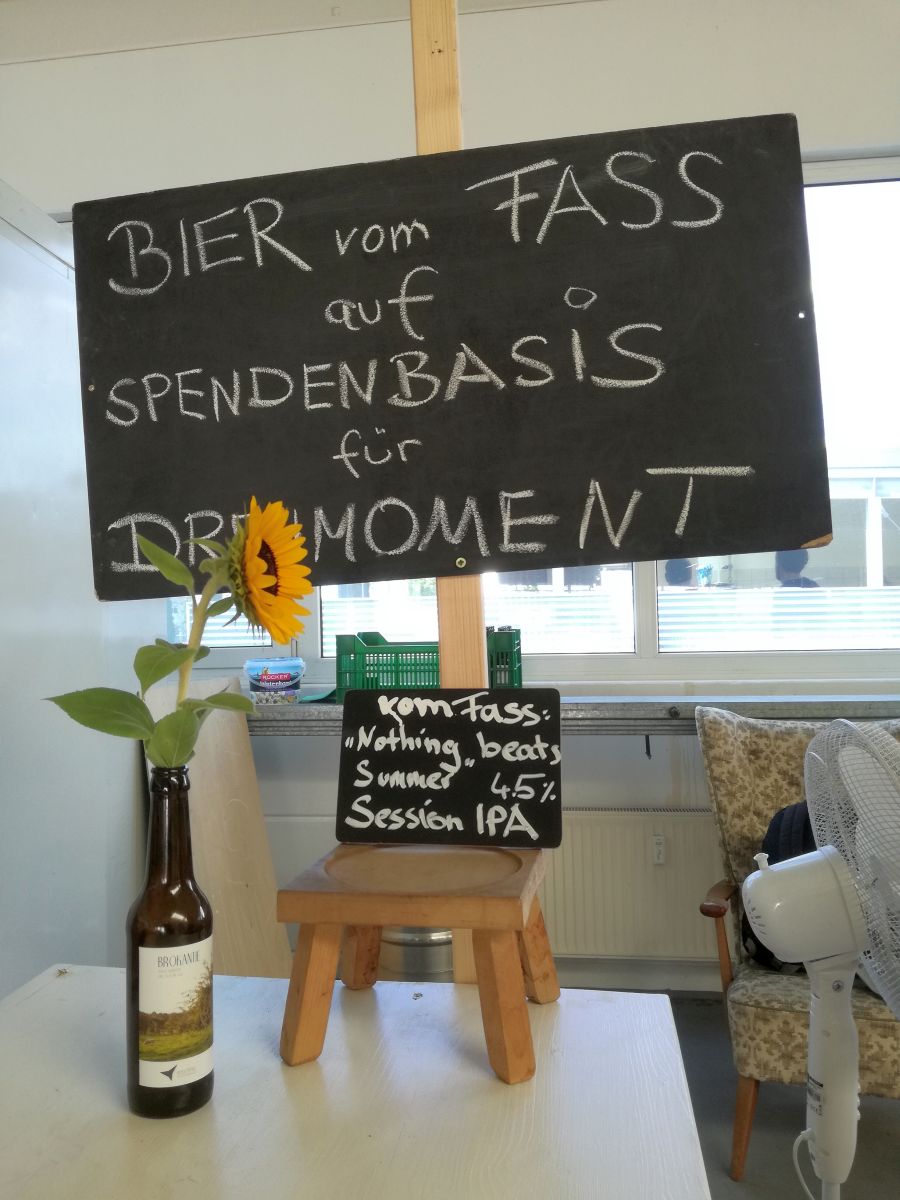 BIER vom FASS
auf
SPENDENBASIS
für
DREHMOMENT
vom Fass:
„Nothing beats
Summer“ 4.5%
Session IPA
BROKANTIE
ROCKER